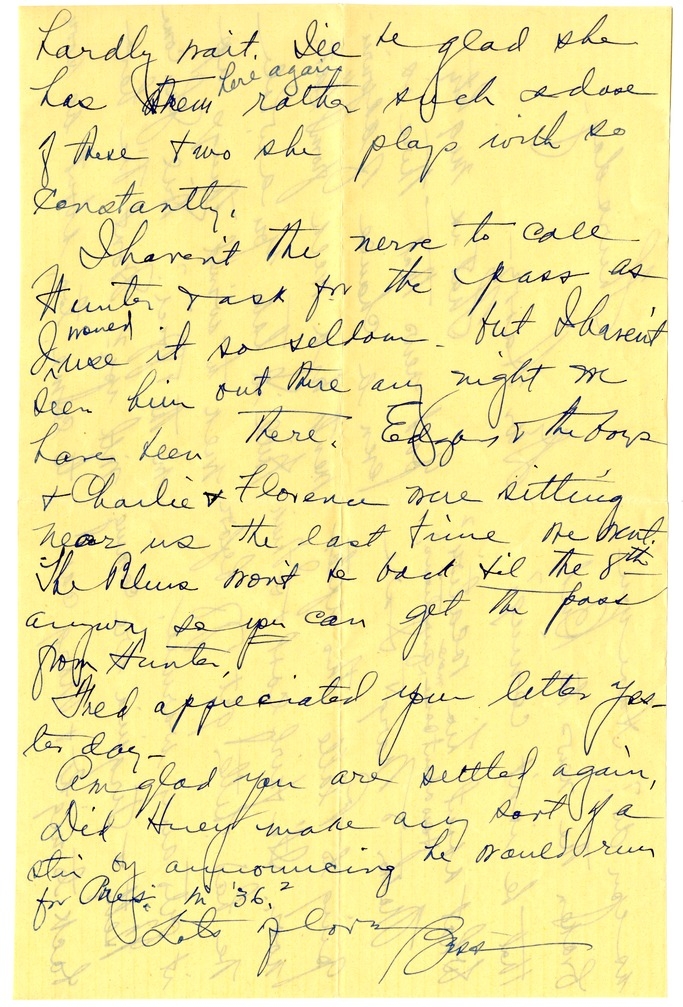 hardly wait. I'll be glad she
here again
has them rather such a dose
of these & two she plays with so
constantly.
I haven't the nerve to call
Hunter & ask for the pass as
would
I use it so seldom - but I haven't
seen him out there any night we
have been there. Edgar & the boys
& Charlie & Florence were sitting
near us the last time we went.
The Blues won't be back til the 8th
anyway so you can get the pass
from Hunter.
Fred appreciated your letter yes-
terday -
Am glad you are settled again.
Did Huey make any sort of a
stir by announcing he would run
for Pres. in '36.?
Lots of love Bess